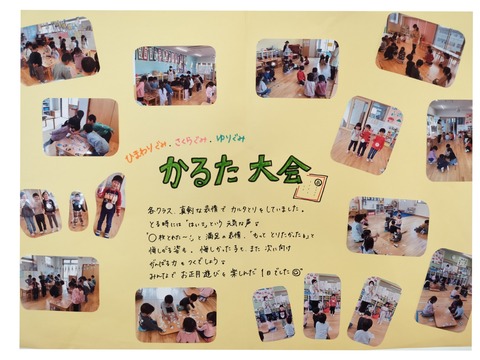 ひまわりぐみ・さくらぐみ・ゆりぐみ
かるた大会
各クラス 真剣な表情で カルタとりをしていました。
とる時には"はいっ"という 元気な声♪
"○枚とれた〜"と 満足の表情、"もっと とりたかった"と
悔しがる姿も。悔しかった子も、また 次に向け
がんばる力も つくでしょう♪
みんなで お正月遊びを 楽しんだ 1日でした